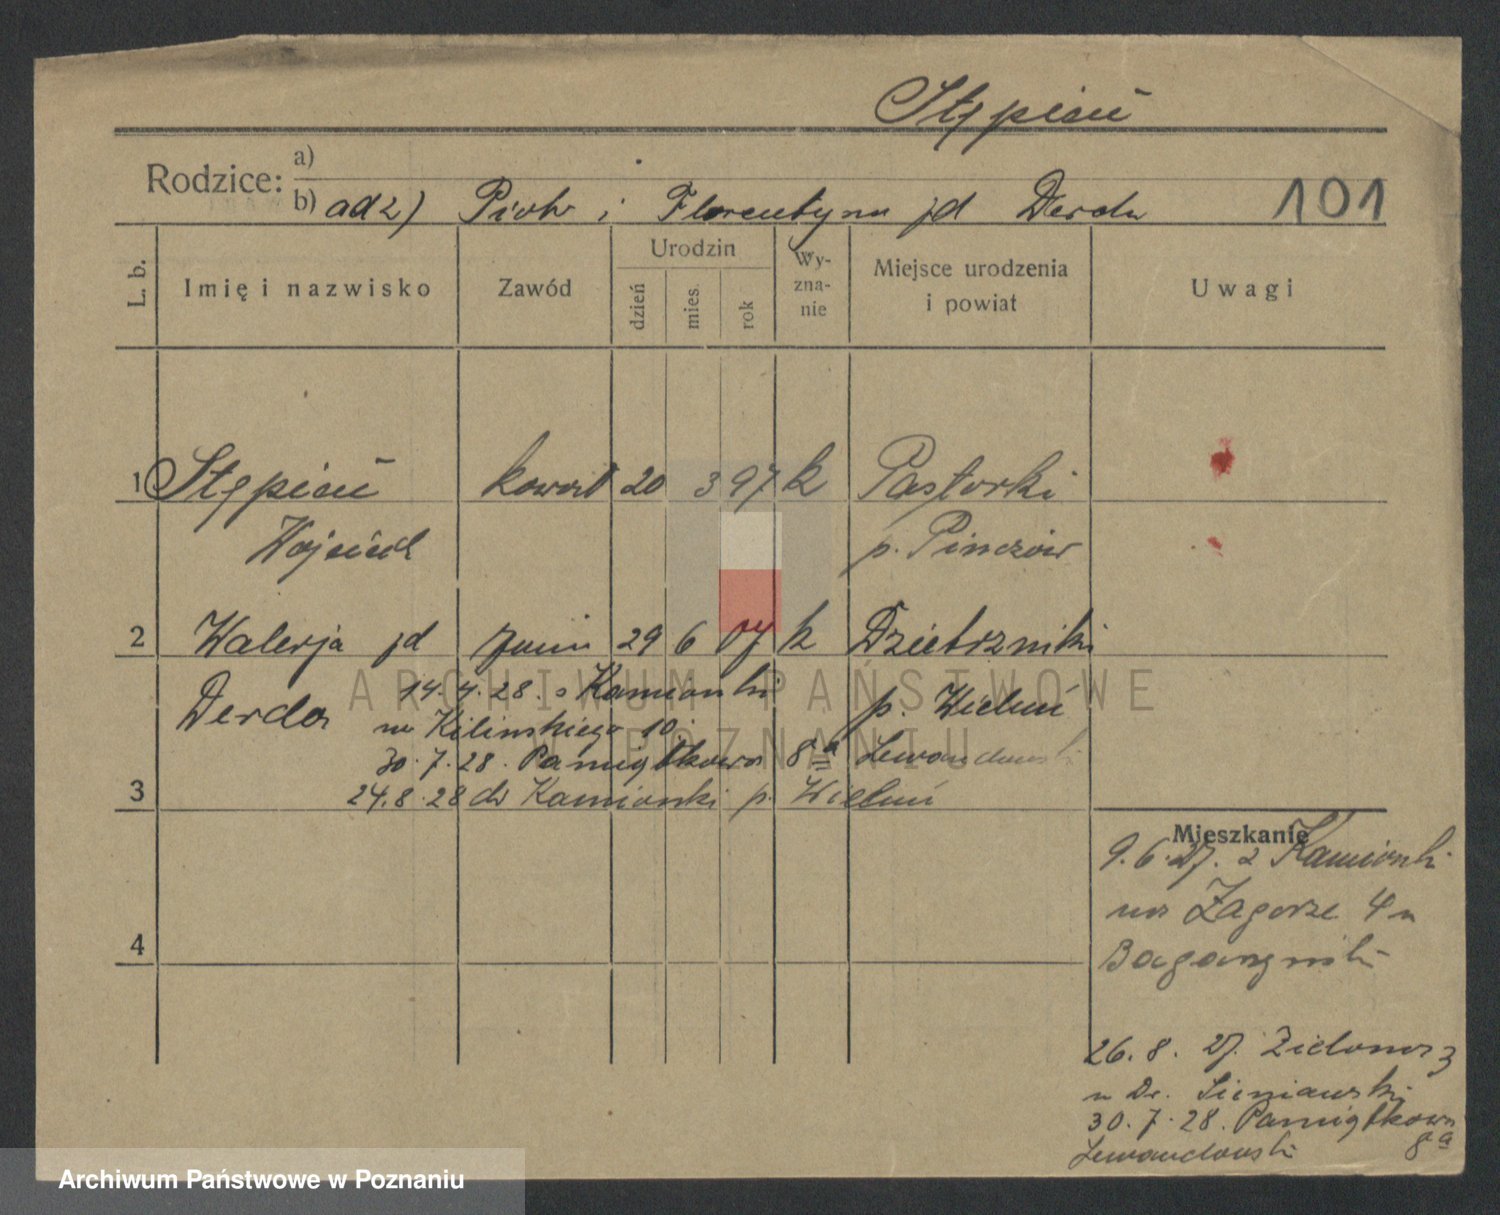 Stępień
Rodzice: a)
b) ad 2) Piotr i Florentyna zd Derda 101
L. b. Imię i nazwisko Zawód Urodzin dzień mies. rok Wy-zna-nie Miejsce urodzenia i powiat Uwagi
1 Stępień kowal 20 3 97 k Pasturki
Wojciech p. Pińczów
2 Walerja zd 29 6 07 k Dzietrzniki
Derda 14.4.28. z Kamionki p. Wieluń
na Kilińskiego 10
30.7.28. Pamiątkowa 8a Lewandowski
3 24.8.28 do Kamionki p. Wieluń
Mieszkanie
9.6.27. z Kamionki
na Zagorze 4 u
4
26.8.27. Zielona 3
u Dr. Sieniawski
30.7.28. Pamiątkowa
Lewandowski 8a
ARCHIWUM PAŃSTWOWE
W POZNANIU
Archiwum Państwowe w Poznaniu